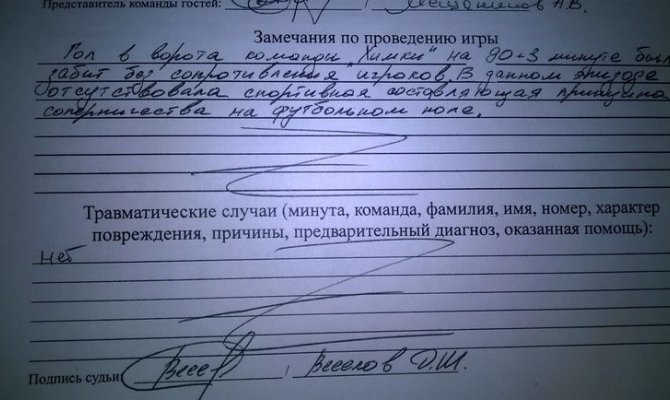 Представитель команды гостей: Мещанинов А.В.
Замечания по проведению игры
Гол в ворота команды „Химки" на 90+3 минуте был
забит без сопротивления игроков. В данном эпизоде
отсутствовала спортивная составляющая принципа
соперничества на футбольном поле.
Травматические случаи (минута, команда, фамилия, имя, номер, характер
повреждения, причины, предварительный диагноз, оказанная помощь):
Нет
Подпись судьи: Весел / Веселов Д.Ш.